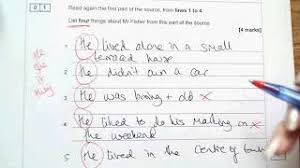 0 1
Read again the first part of the source, from lines 1 to 4
List four things about Mr Fisher from this part of the source.
[4 marks]
1 He lived alone in a small
terraced house
2 He didn't own a car
3 He was boring + old x
4 He liked to do his marking on x
the weekend
5 He lived in the centre of town
He
she
it
they